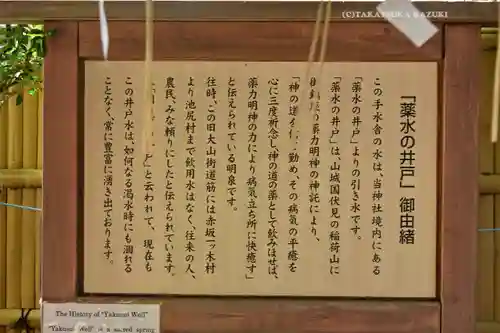 (C)TAKATSUKA KAZUKI
「薬水の井戸」御由緒
この手水舎の水は、当神社境内にある
「薬水の井戸」よりの引き水です。
「薬水の井戸」は、山城国伏見の稲荷山に
薬力明神の神託により、
「神の道を 勤め、その病気の平癒を
心に三度祈念し、神の道の薬として飲みほせば、
薬力明神の力により病気立ち所に快癒す」
と伝えられている明泉です。
往時、この旧大山街道筋には赤坂一ッ木村
より池尻村まで飲用水はなく、往来の人、
農民、みな頼りにしたと伝えられています。
と云われて、現在も
この井戸水は、如何なる渇水時にも涸れる
ことなく、常に豊富に湧き出ております。
The History of "Yakusui Well"
"Yakusui Well" is a sacred spring